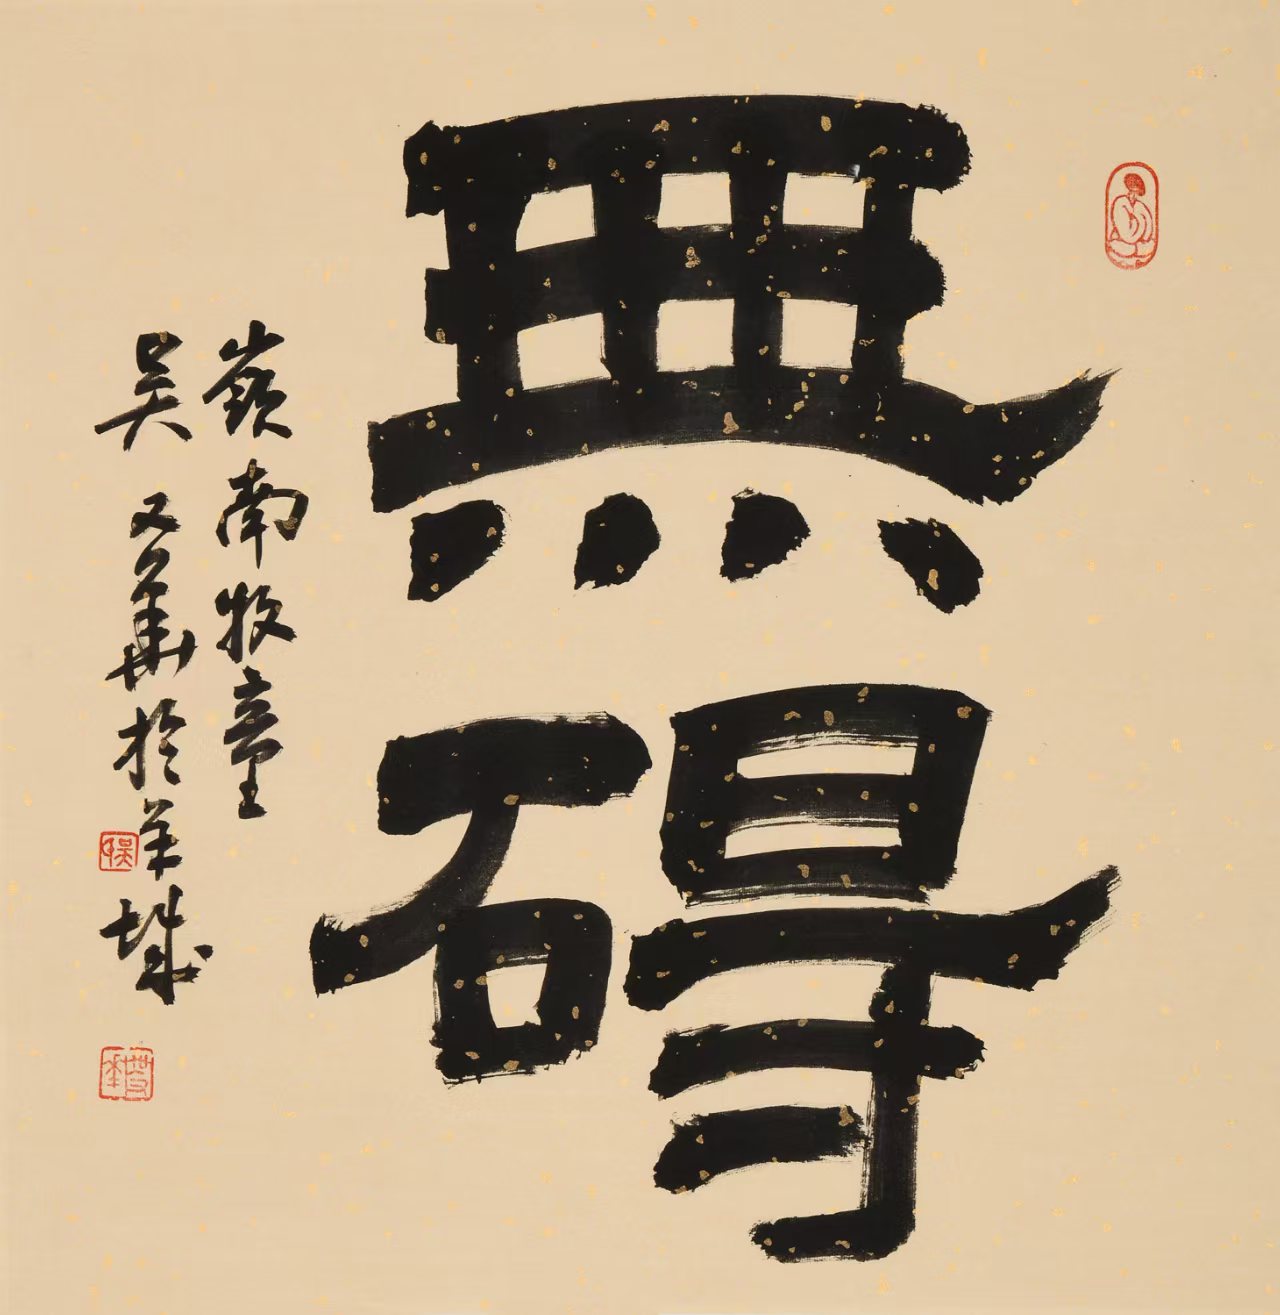 無碍
嶺南牧童
吴又華於羊城